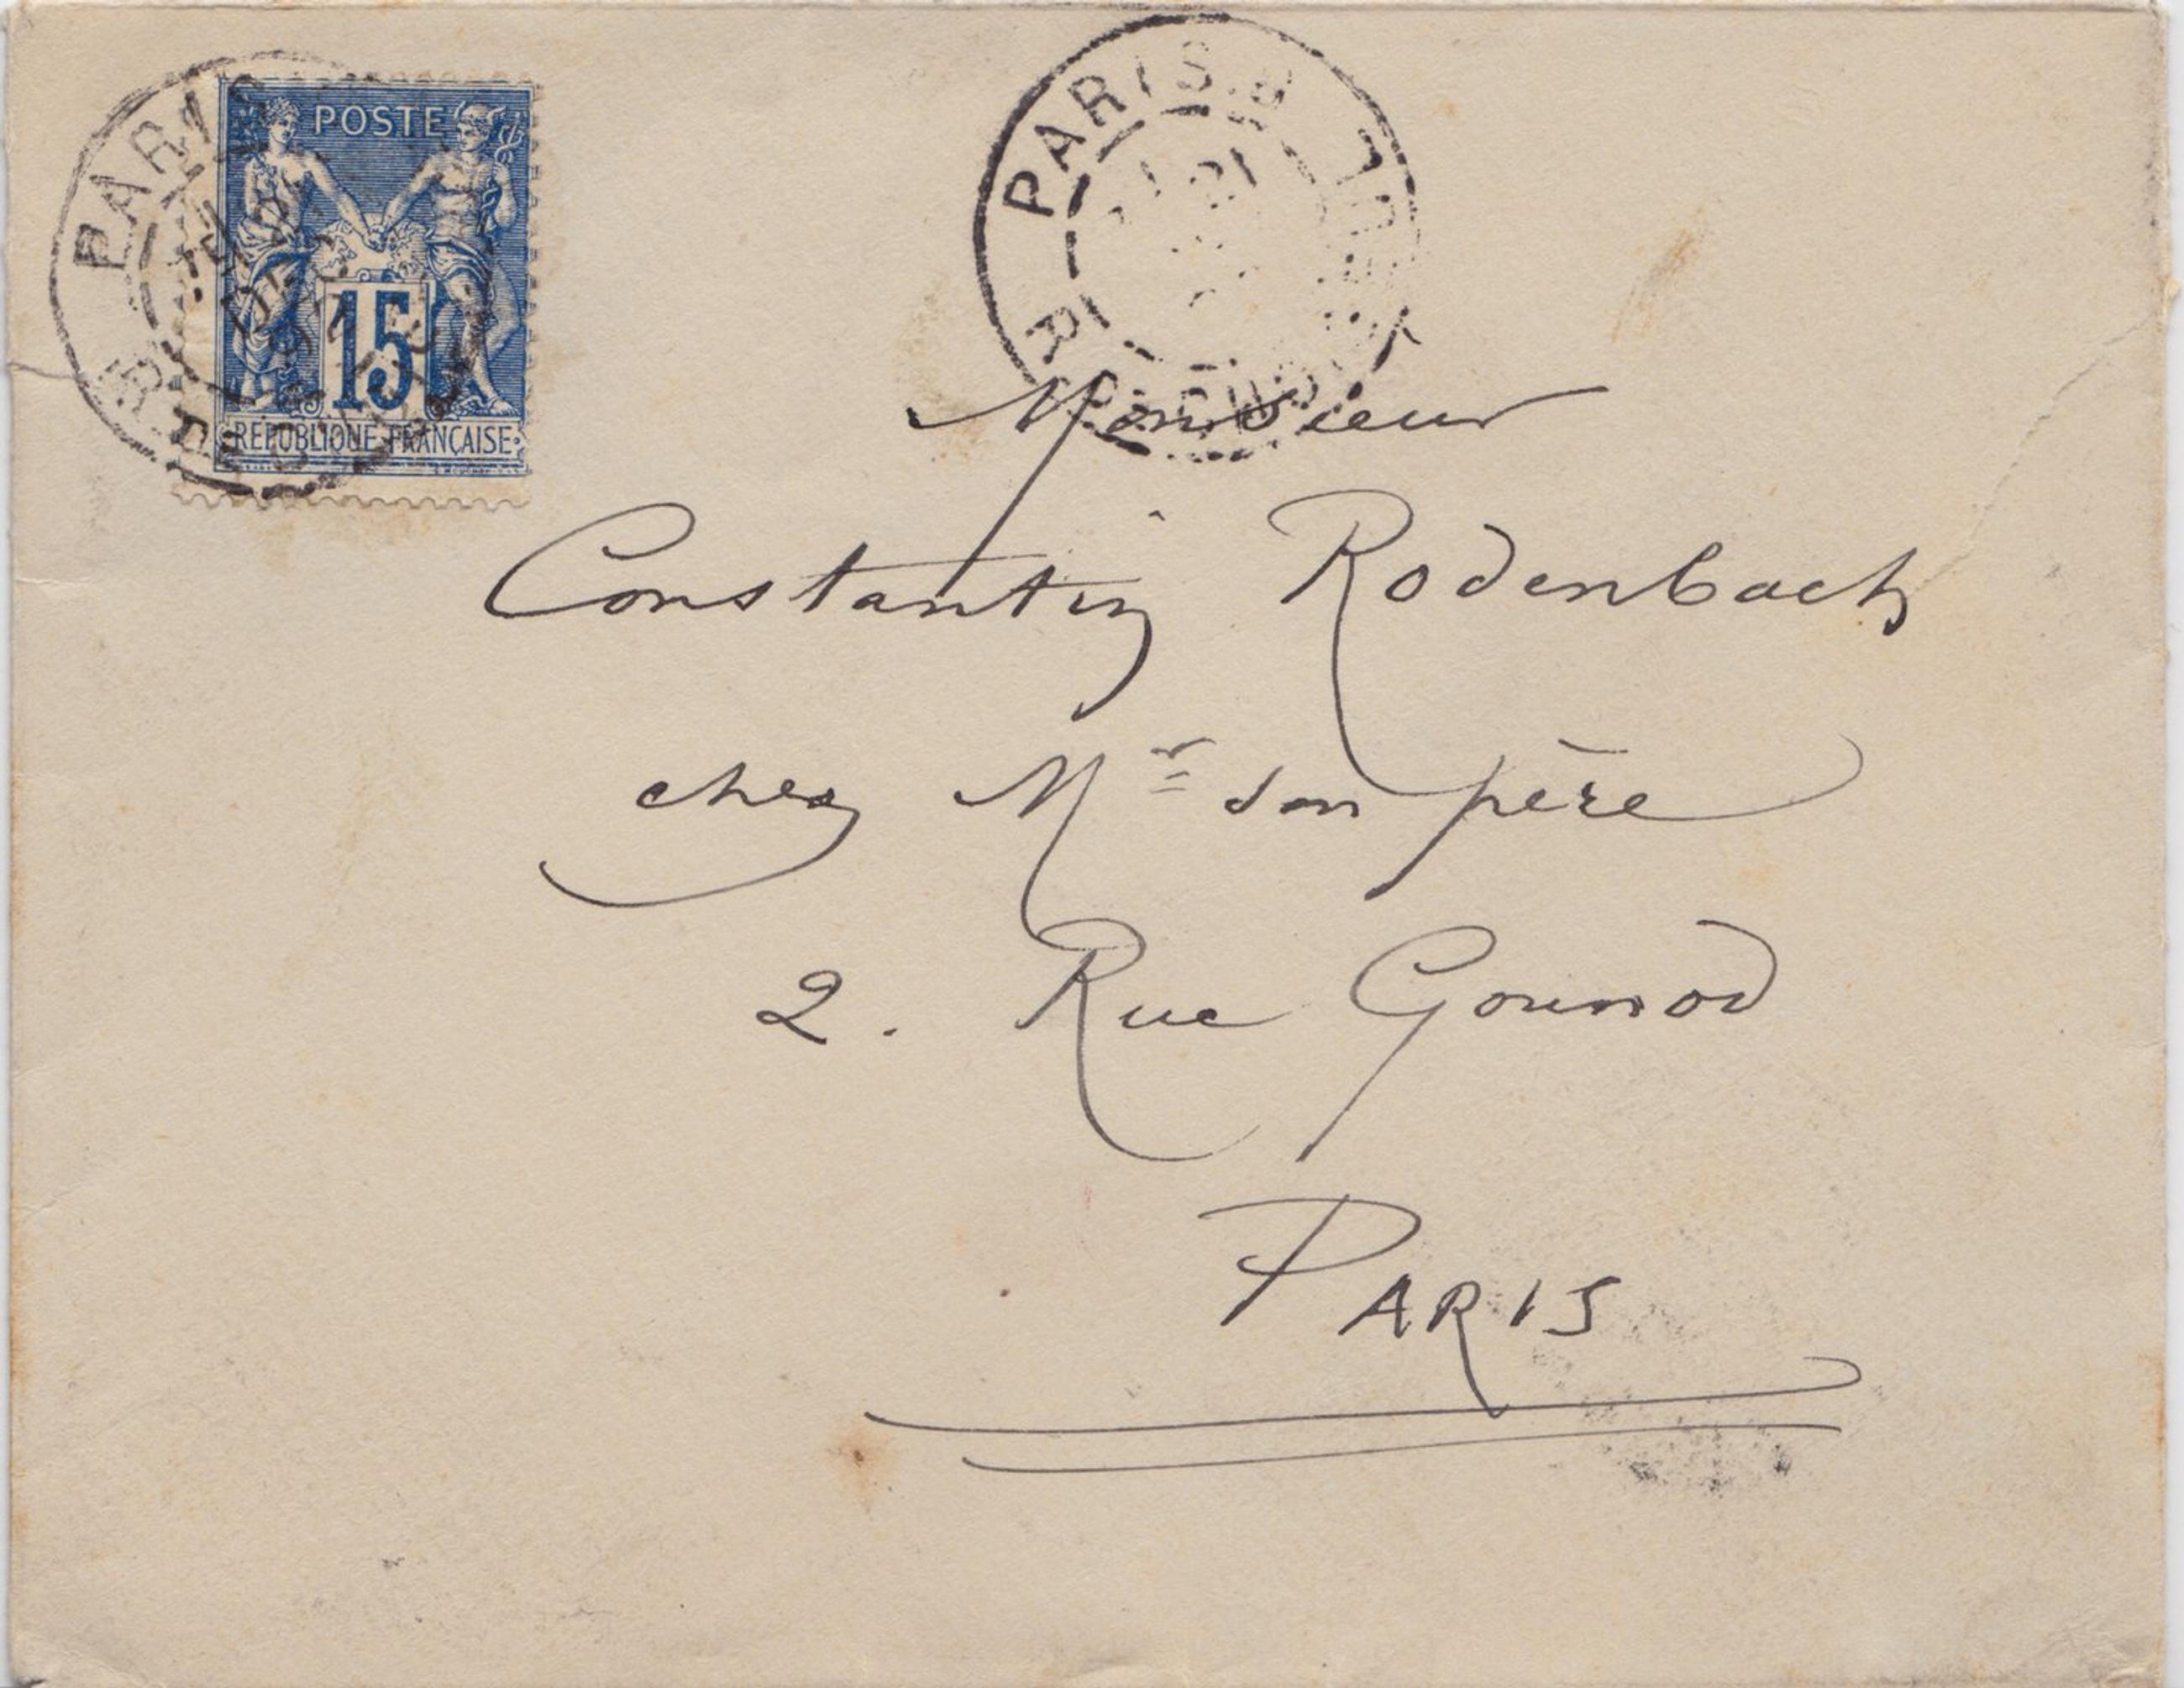 POSTE
15
REPUBLIQUE FRANÇAISE
PARIS
DEC
PARIS
Monsieur
Constantin Rodenbach
chez Mr son père
2. Rue Gounod
PARIS